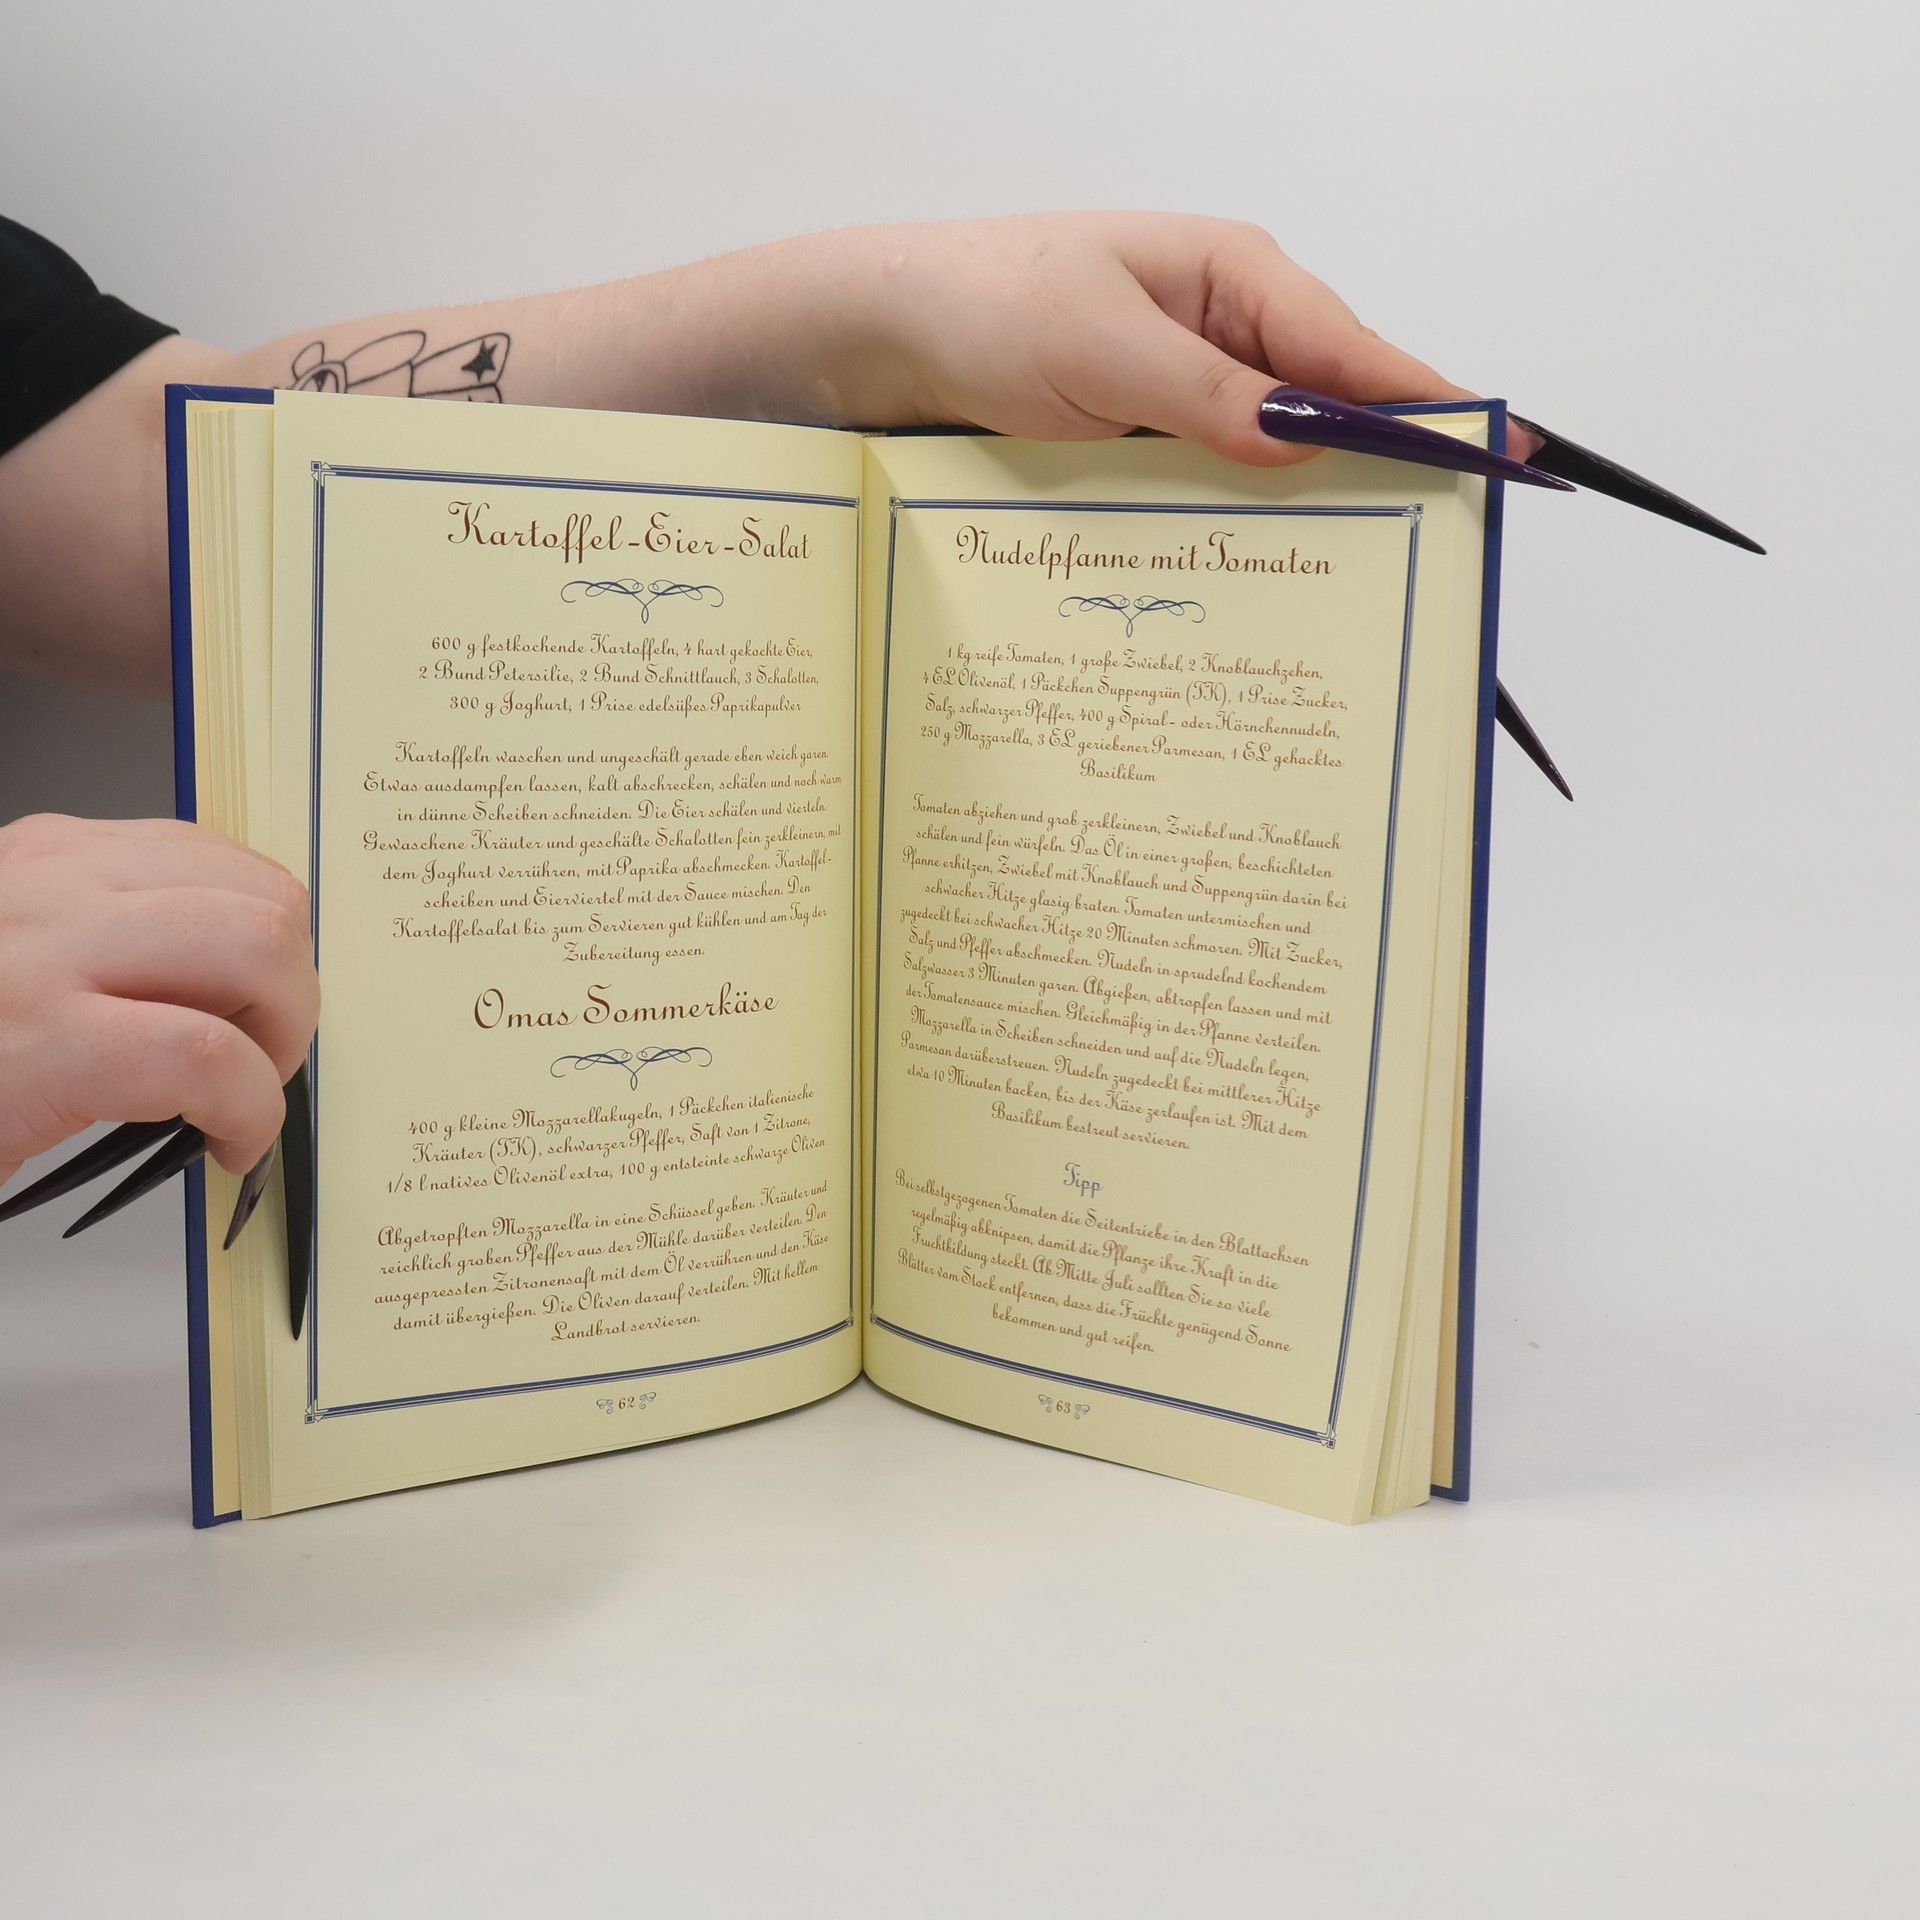 Kartoffel-Eier-Salat
600 g festkochende Kartoffeln, 4 hart gekochte Eier,
2 Bund Petersilie, 2 Bund Schnittlauch, 3 Schalotten,
300 g Joghurt, 1 Prise edelsüßes Paprikapulver
Kartoffeln waschen und ungeschält gerade eben weich garen.
Etwas ausdampfen lassen, kalt abschrecken, schälen und noch warm
in dünne Scheiben schneiden. Die Eier schälen und vierteln.
Gewaschene Kräuter und geschälte Schalotten fein zerkleinern, mit
dem Joghurt verrühren, mit Paprika abschmecken. Kartoffel-
scheiben und Eierviertel mit der Sauce mischen. Den
Kartoffelsalat bis zum Servieren gut kühlen und am Tag der
Zubereitung essen.
Omas Sommerkäse
400 g kleine Mozzarellakugeln, 1 Päckchen italienische
Kräuter (TK), schwarzer Pfeffer, Saft von 1 Zitrone,
1/8 l natives Olivenöl extra, 100 g entsteinte schwarze Oliven
Abgetropften Mozzarella in eine Schüssel geben. Kräuter und
reichlich groben Pfeffer aus der Mühle darüber verteilen. Den
ausgepressten Zitronensaft mit dem Öl verrühren und den Käse
damit übergießen. Die Oliven darauf verteilen. Mit hellem
Landbrot servieren.
62
Nudelpfanne mit Tomaten
1 kg reife Tomaten, 1 große Zwiebel, 2 Knoblauchzehen,
4 EL Olivenöl, 1 Päckchen Suppengrün (TK), 1 Prise Zucker,
Salz, schwarzer Pfeffer, 400 g Spiral- oder Hörnchennudeln,
250 g Mozzarella, 3 EL geriebener Parmesan, 1 EL gehacktes
Basilikum
Tomaten abziehen und grob zerkleinern, Zwiebel und Knoblauch
schälen und fein würfeln. Das Öl in einer großen, beschichteten
Pfanne erhitzen, Zwiebel mit Knoblauch und Suppengrün darin bei
schwacher Hitze glasig braten. Tomaten untermischen und
zugedeckt bei schwacher Hitze 20 Minuten schmoren. Mit Zucker,
Salz und Pfeffer abschmecken. Nudeln in sprudelnd kochendem
Salzwasser 3 Minuten garen. Abgießen, abtropfen lassen und mit
der Tomatensauce mischen. Gleichmäßig in der Pfanne verteilen.
Mozzarella in Scheiben schneiden und auf die Nudeln legen,
Parmesan darüberstreuen. Nudeln zugedeckt bei mittlerer Hitze
etwa 10 Minuten backen, bis der Käse zerlaufen ist. Mit dem
Basilikum bestreut servieren.
Tipp
Bei selbstgezogenen Tomaten die Seitentriebe in den Blattachsen
regelmäßig abknipsen, damit die Pflanze ihre Kraft in die
Fruchtbildung steckt. Ab Mitte Juli sollten Sie so viele
Blätter vom Stock entfernen, dass die Früchte genügend Sonne
bekommen und gut reifen.
63